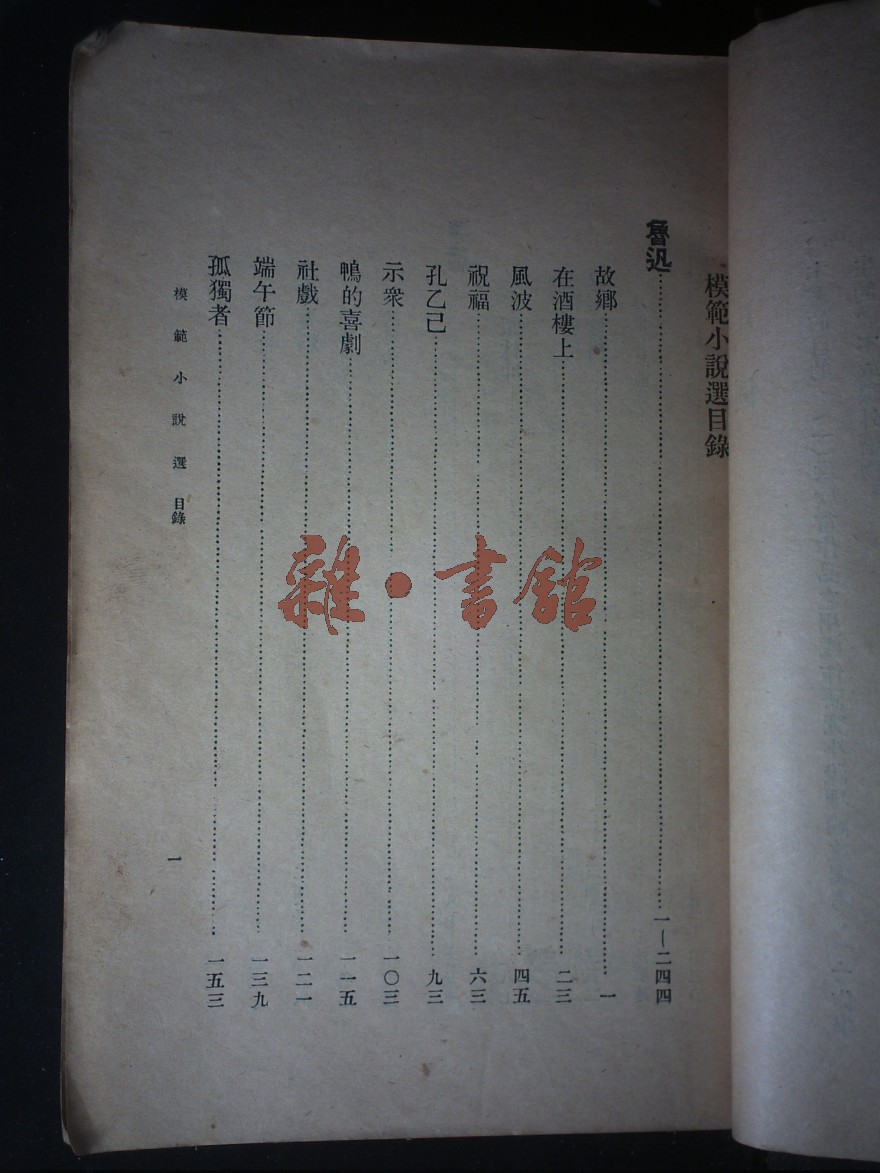 模範小說選目錄
魯迅……一—二四四
故鄉……一
在酒樓上……二三
風波……四五
祝福……六三
孔乙己……九三
示衆……一〇三
鴨的喜劇……一一五
社戲……一二一
端午節……一三九
孤獨者……一五三
模範小說選 目錄
一
雜·書館